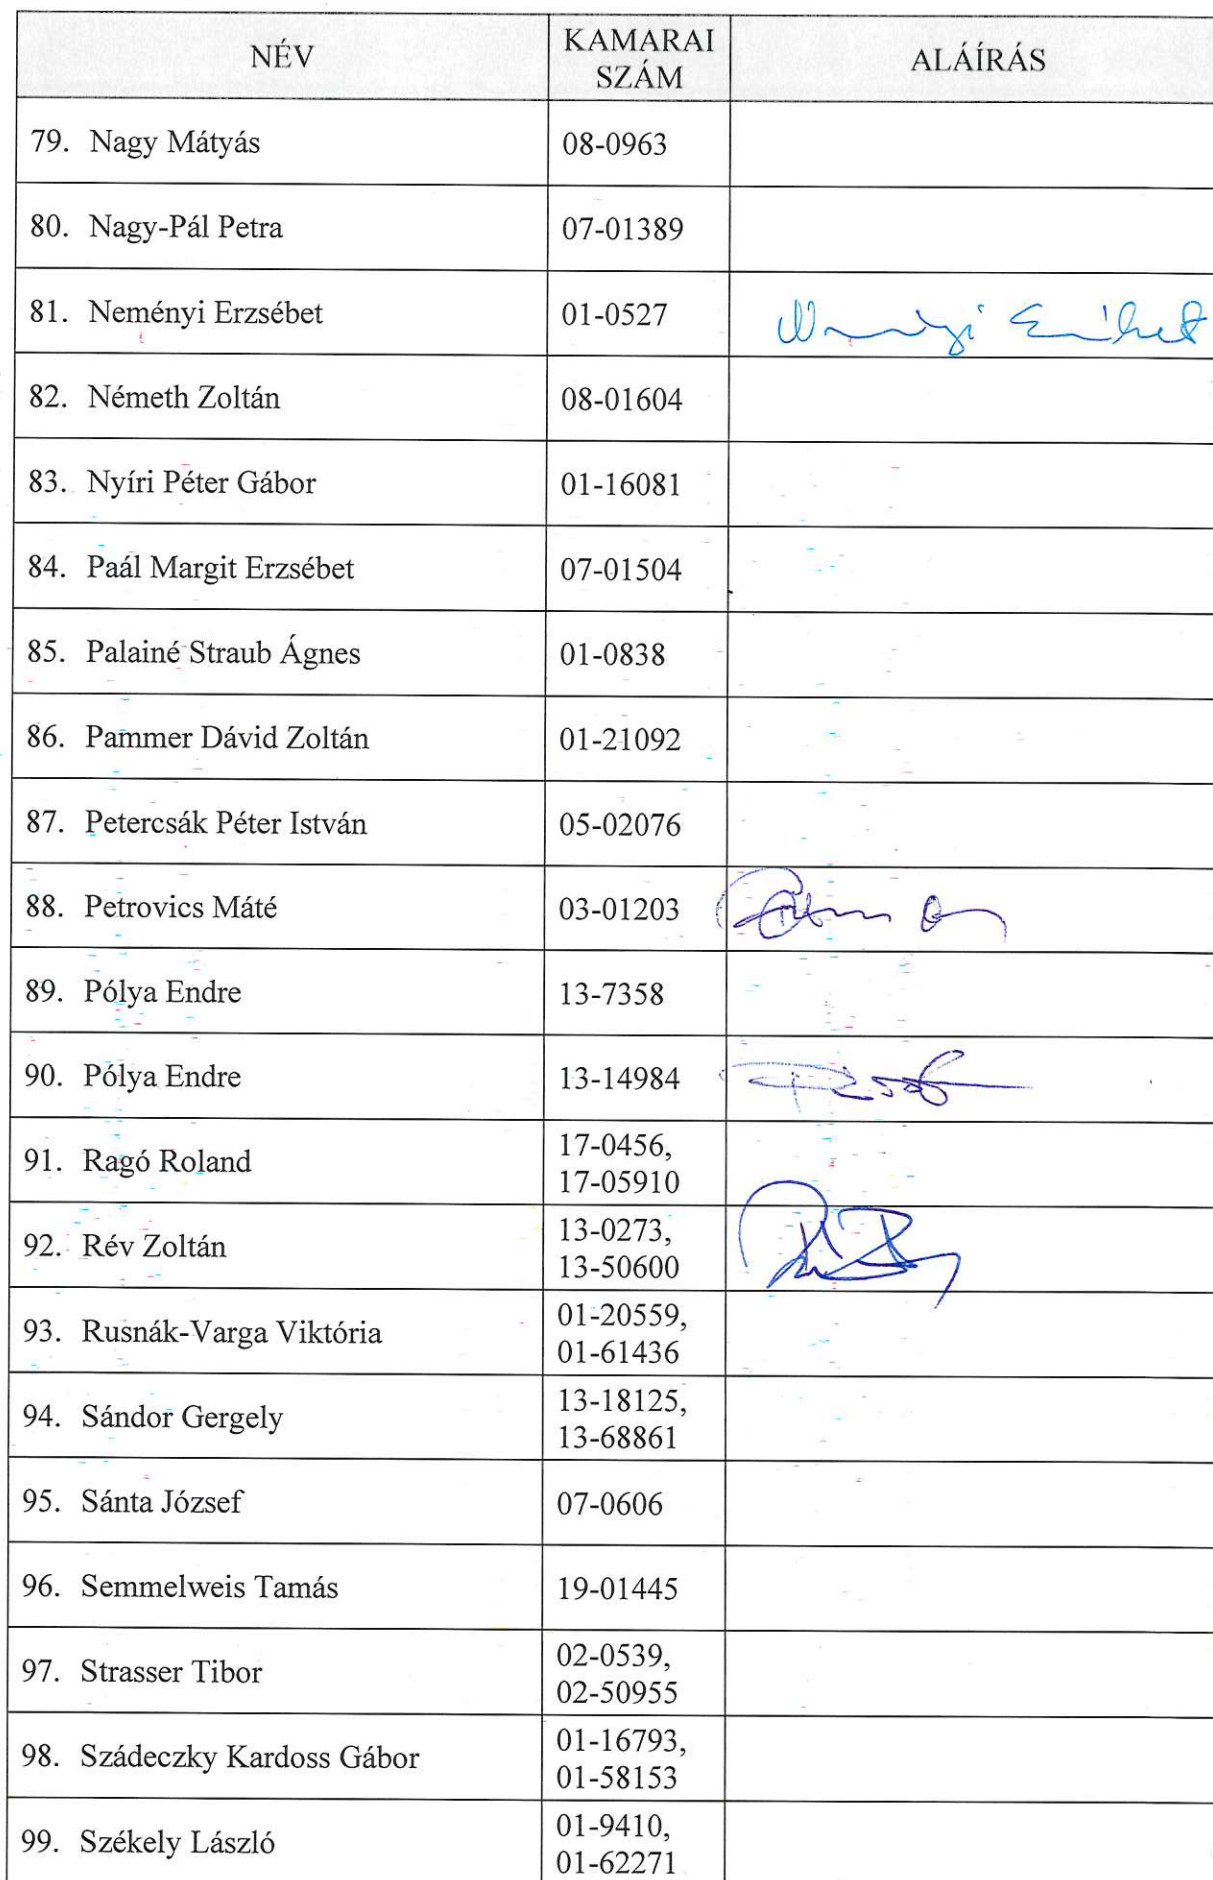 NÉV KAMARAI SZÁM ALÁÍRÁS
79. Nagy Mátyás 08-0963
80. Nagy-Pál Petra 07-01389
81. Neményi Erzsébet 01-0527 Neményi Erzsébet
82. Németh Zoltán 08-01604
83. Nyíri Péter Gábor 01-16081
84. Paál Margit Erzsébet 07-01504
85. Palainé Straub Ágnes 01-0838
86. Pammer Dávid Zoltán 01-21092
87. Petercsák Péter István 05-02076
88. Petrovics Máté 03-01203
89. Pólya Endre 13-7358
90. Pólya Endre 13-14984
91. Ragó Roland 17-0456,
17-05910
92. Rév Zoltán 13-0273,
13-50600
93. Rusnák-Varga Viktória 01-20559,
01-61436
94. Sándor Gergely 13-18125,
13-68861
95. Sánta József 07-0606
96. Semmelweis Tamás 19-01445
97. Strasser Tibor 02-0539,
02-50955
98. Szádeczky Kardoss Gábor 01-16793,
01-58153
99. Székely László 01-9410,
01-62271